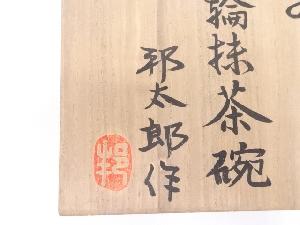 輪抹茶碗
邦太郎作